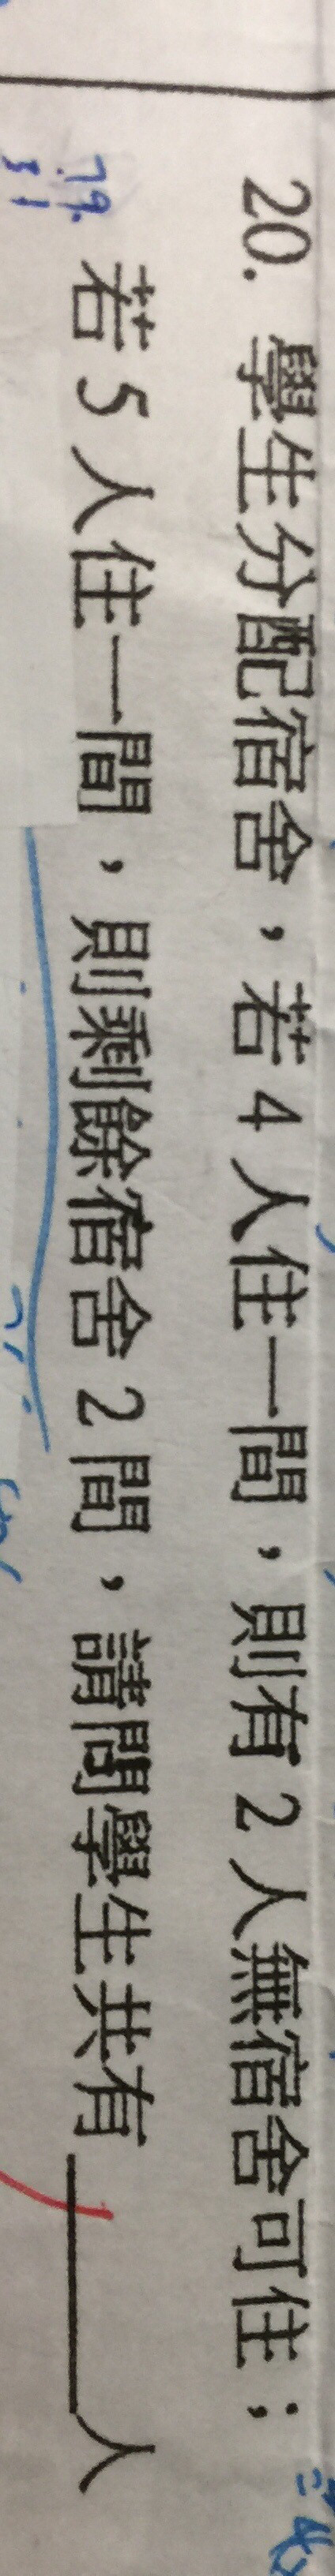 20. 學生分配宿舍，若 4 人住一間，則有 2 人無宿舍可住；
若 5 人住一間，則剩餘宿舍 2 間，請問學生共有______人